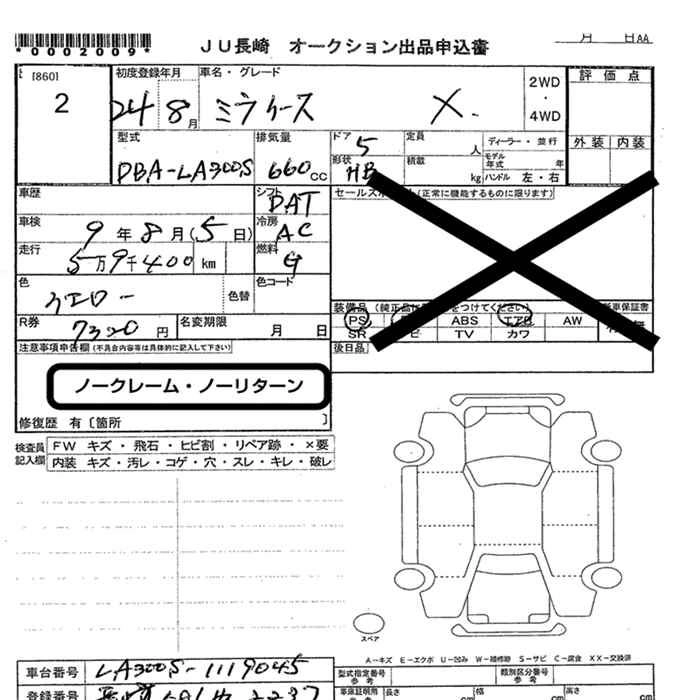 *0002009*
JU長崎 オークション出品申込書
月 日AA
[860]
2
初度登録年月
24 8月
車名・グレード
ミライース X.
2WD
・
4WD
評価点
外装 内装
型式
DBA-LA300S
排気量
660cc
ドア 5
形状 HB
定員 人
積載 kg
ディーラー・並行
モデル年式 年
ハンドル 左・右
車歴
シフト DAT
セールスポイント(正常に機能するものに限ります)
車検
9年8月(5日)
冷房 AC
走行
5万9千400 km
燃料 G
色
イエロー
色替
色コード
装備品
PS ABS エアB AW
SR TV カワ
R券
7320円
名変期限 月 日
後日品
注意事項申告欄(不具合内容等は具体的に記入して下さい)
ノークレーム・ノーリターン
修復歴 有〔箇所 〕
検査員記入欄
FW キズ・飛石・ヒビ割・リペア跡・×要
内装 キズ・汚レ・コゲ・穴・スレ・キレ・破レ
スペア
A-キズ E-エクボ U-凹み W-補修跡 S-サビ C-腐食 XX-交換済
車台番号 LA300S-1119045
型式指定番号 参考
類別区分番号 参考
登録番号
車庫証明用 参考
長さ 幅 高さ